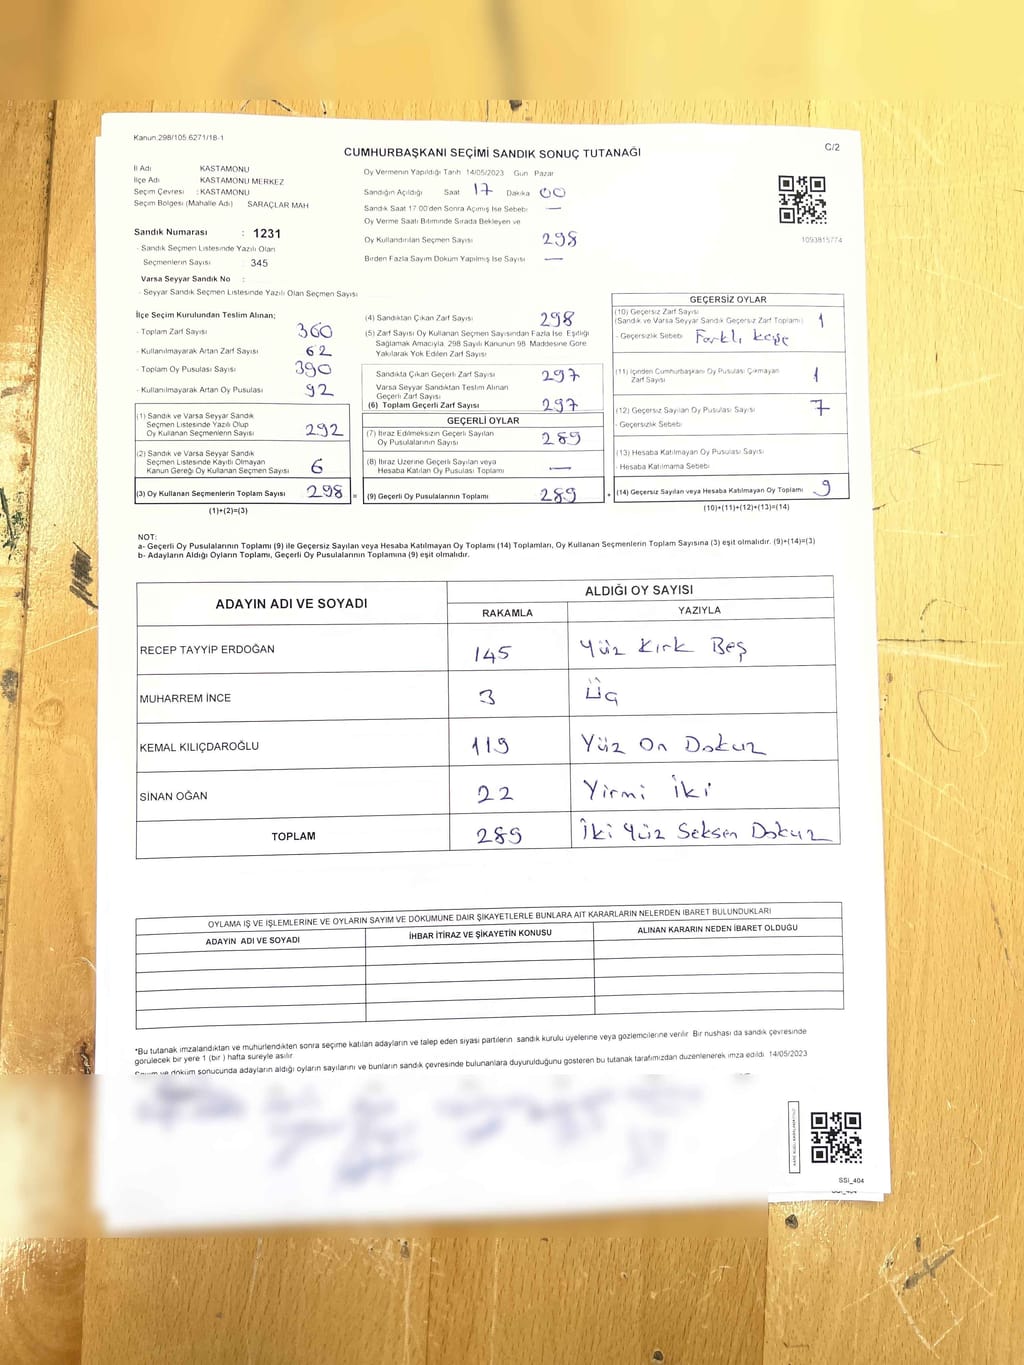 Kanun 298/105 6271/18-1
C/2
CUMHURBAŞKANI SEÇİMİ SANDIK SONUÇ TUTANAĞI
İl Adı KASTAMONU
İlçe Adı KASTAMONU MERKEZ
Seçim Çevresi : KASTAMONU
Seçim Bölgesi (Mahalle Adı) SARAÇLAR MAH
Sandık Numarası : 1231
- Sandık Seçmen Listesinde Yazılı Olan
Seçmenlerin Sayısı : 345
Varsa Seyyar Sandık No :
- Seyyar Sandık Seçmen Listesinde Yazılı Olan Seçmen Sayısı
Oy Vermenin Yapıldığı Tarih 14/05/2023 Gün Pazar
Sandığın Açıldığı Saat 17 Dakika 00
Sandık Saat 17:00'den Sonra Açımış İse Sebebi —
Oy Verme Saati Bitiminde Sırada Bekleyen ve
Oy Kullandırılan Seçmen Sayısı 298
Birden Fazla Sayım Döküm Yapılmış İse Sayısı —
1093815774
İlçe Seçim Kurulundan Teslim Alınan;
- Toplam Zarf Sayısı 360
- Kullanılmayarak Artan Zarf Sayısı 62
- Toplam Oy Pusulası Sayısı 390
- Kullanılmayarak Artan Oy Pusulası 92
(1) Sandık ve Varsa Seyyar Sandık
Seçmen Listesinde Yazılı Olup
Oy Kullanan Seçmenlerin Sayısı 292
(2) Sandık ve Varsa Seyyar Sandık
Seçmen Listesinde Kayıtlı Olmayan
Kanun Gereği Oy Kullanan Seçmen Sayısı 6
(3) Oy Kullanan Seçmenlerin Toplam Sayısı 298 =
(1)+(2)=(3)
(4) Sandıktan Çıkan Zarf Sayısı 298
(5) Zarf Sayısı Oy Kullanan Seçmen Sayısından Fazla İse Eşitliği
Sağlamak Amacıyla, 298 Sayılı Kanunun 98 Maddesine Göre
Yakılarak Yok Edilen Zarf Sayısı
Sandıkta Çıkan Geçerli Zarf Sayısı 297
Varsa Seyyar Sandıktan Teslim Alınan
Geçerli Zarf Sayısı
(6) Toplam Geçerli Zarf Sayısı 297
GEÇERLİ OYLAR
(7) İtiraz Edilmeksizin Geçerli Sayılan
Oy Pusulalarının Sayısı 289
(8) İtiraz Üzerine Geçerli Sayılan veya
Hesaba Katılan Oy Pusulası Toplamı —
(9) Geçerli Oy Pusulalarının Toplamı 289 +
GEÇERSİZ OYLAR
(10) Geçersiz Zarf Sayısı
(Sandık ve Varsa Seyyar Sandık Geçersiz Zarf Toplamı) 1
- Geçersizlik Sebebi Farklı kaşe
(11) İçinden Cumhurbaşkanı Oy Pusulası Çıkmayan
Zarf Sayısı 1
(12) Geçersiz Sayılan Oy Pusulası Sayısı 7
- Geçersizlik Sebebi
(13) Hesaba Katılmayan Oy Pusulası Sayısı
- Hesaba Katılmama Sebebi
(14) Geçersiz Sayılan veya Hesaba Katılmayan Oy Toplamı 9
(10)+(11)+(12)+(13)=(14)
NOT:
a- Geçerli Oy Pusulalarının Toplamı (9) ile Geçersiz Sayılan veya Hesaba Katılmayan Oy Toplamı (14) Toplamları, Oy Kullanan Seçmenlerin Toplam Sayısına (3) eşit olmalıdır. (9)+(14)=(3)
b- Adayların Aldığı Oyların Toplamı, Geçerli Oy Pusulalarının Toplamına (9) eşit olmalıdır.
ADAYIN ADI VE SOYADI
ALDIĞI OY SAYISI
RAKAMLA YAZIYLA
RECEP TAYYİP ERDOĞAN 145 Yüz Kırk Beş
MUHARREM İNCE 3 Üç
KEMAL KILIÇDAROĞLU 119 Yüz On Dokuz
SİNAN OĞAN 22 Yirmi İki
TOPLAM 289 İki Yüz Seksen Dokuz
OYLAMA İŞ VE İŞLEMLERİNE VE OYLARIN SAYIM VE DÖKÜMÜNE DAİR ŞİKAYETLERLE BUNLARA AİT KARARLARIN NELERDEN İBARET BULUNDUKLARI
ADAYIN ADI VE SOYADI İHBAR İTİRAZ VE ŞİKAYETİN KONUSU ALINAN KARARIN NEDEN İBARET OLDUĞU
*Bu tutanak imzalandıktan ve mühürlendikten sonra seçime katılan adayların ve talep eden siyasi partilerin sandık kurulu üyelerine veya gözlemcilerine verilir Bir nüshası da sandık çevresinde
görülecek bir yere 1 (bir ) hafta süreyle asılır
Sayım ve döküm sonucunda adayların aldığı oyların sayılarını ve bunların sandık çevresinde bulunanlara duyurulduğunu gösteren bu tutanak tarafımızdan düzenlenerek imza edildi 14/05/2023
SSI_404
SSI_404